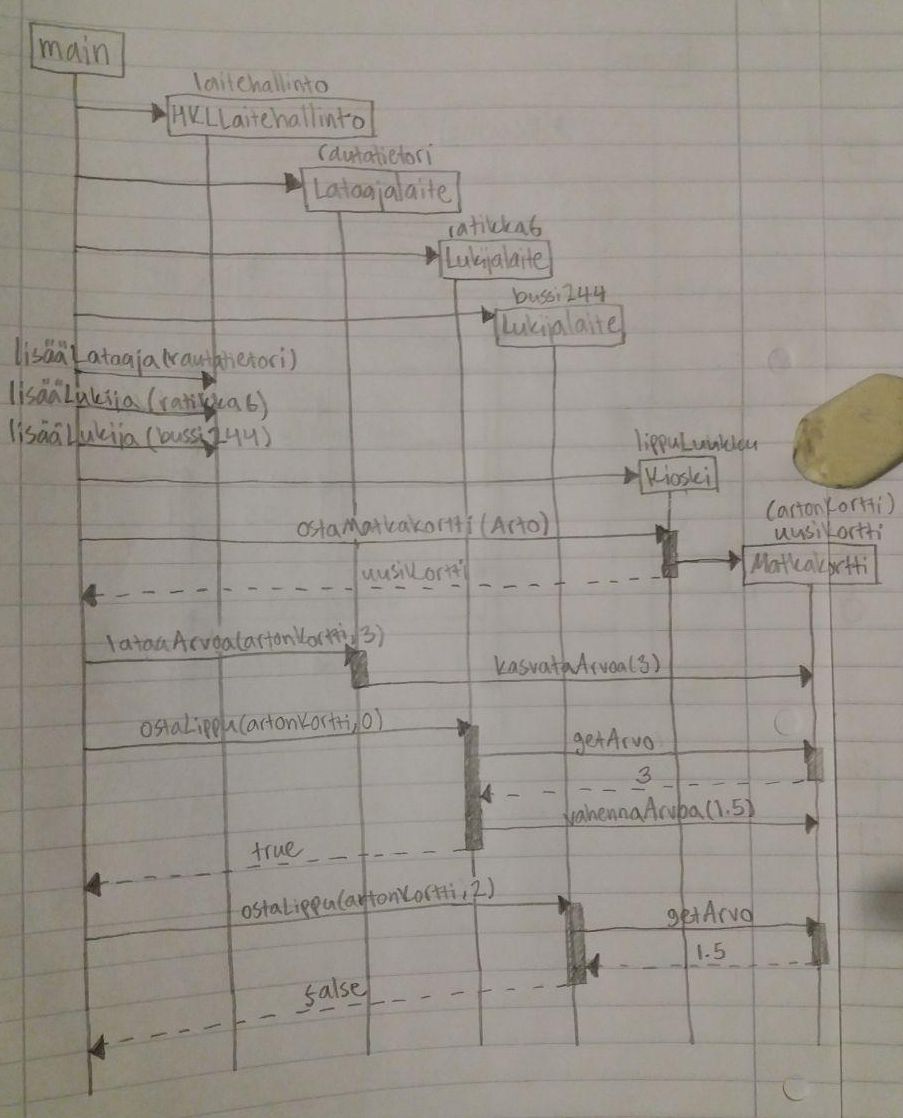 main
laitehallinto
HKLLaitehallinto
rautatietori
Lataajalaite
ratikka6
Lukijalaite
bussi244
Lukijalaite
lisääLataaja(rautatietori)
lisääLukija(ratikka6)
lisääLukija(bussi244)
lippuLuukku
Kioski
(artonKortti)
uusiKortti
Matkakortti
ostaMatkakortti(Arto)
uusiKortti
lataaArvoa(artonKortti,3)
kasvataArvoa(3)
ostaLippu(artonKortti,0)
getArvo
3
vahennaArvoa(1.5)
true
ostaLippu(artonKortti,2)
getArvo
1.5
false